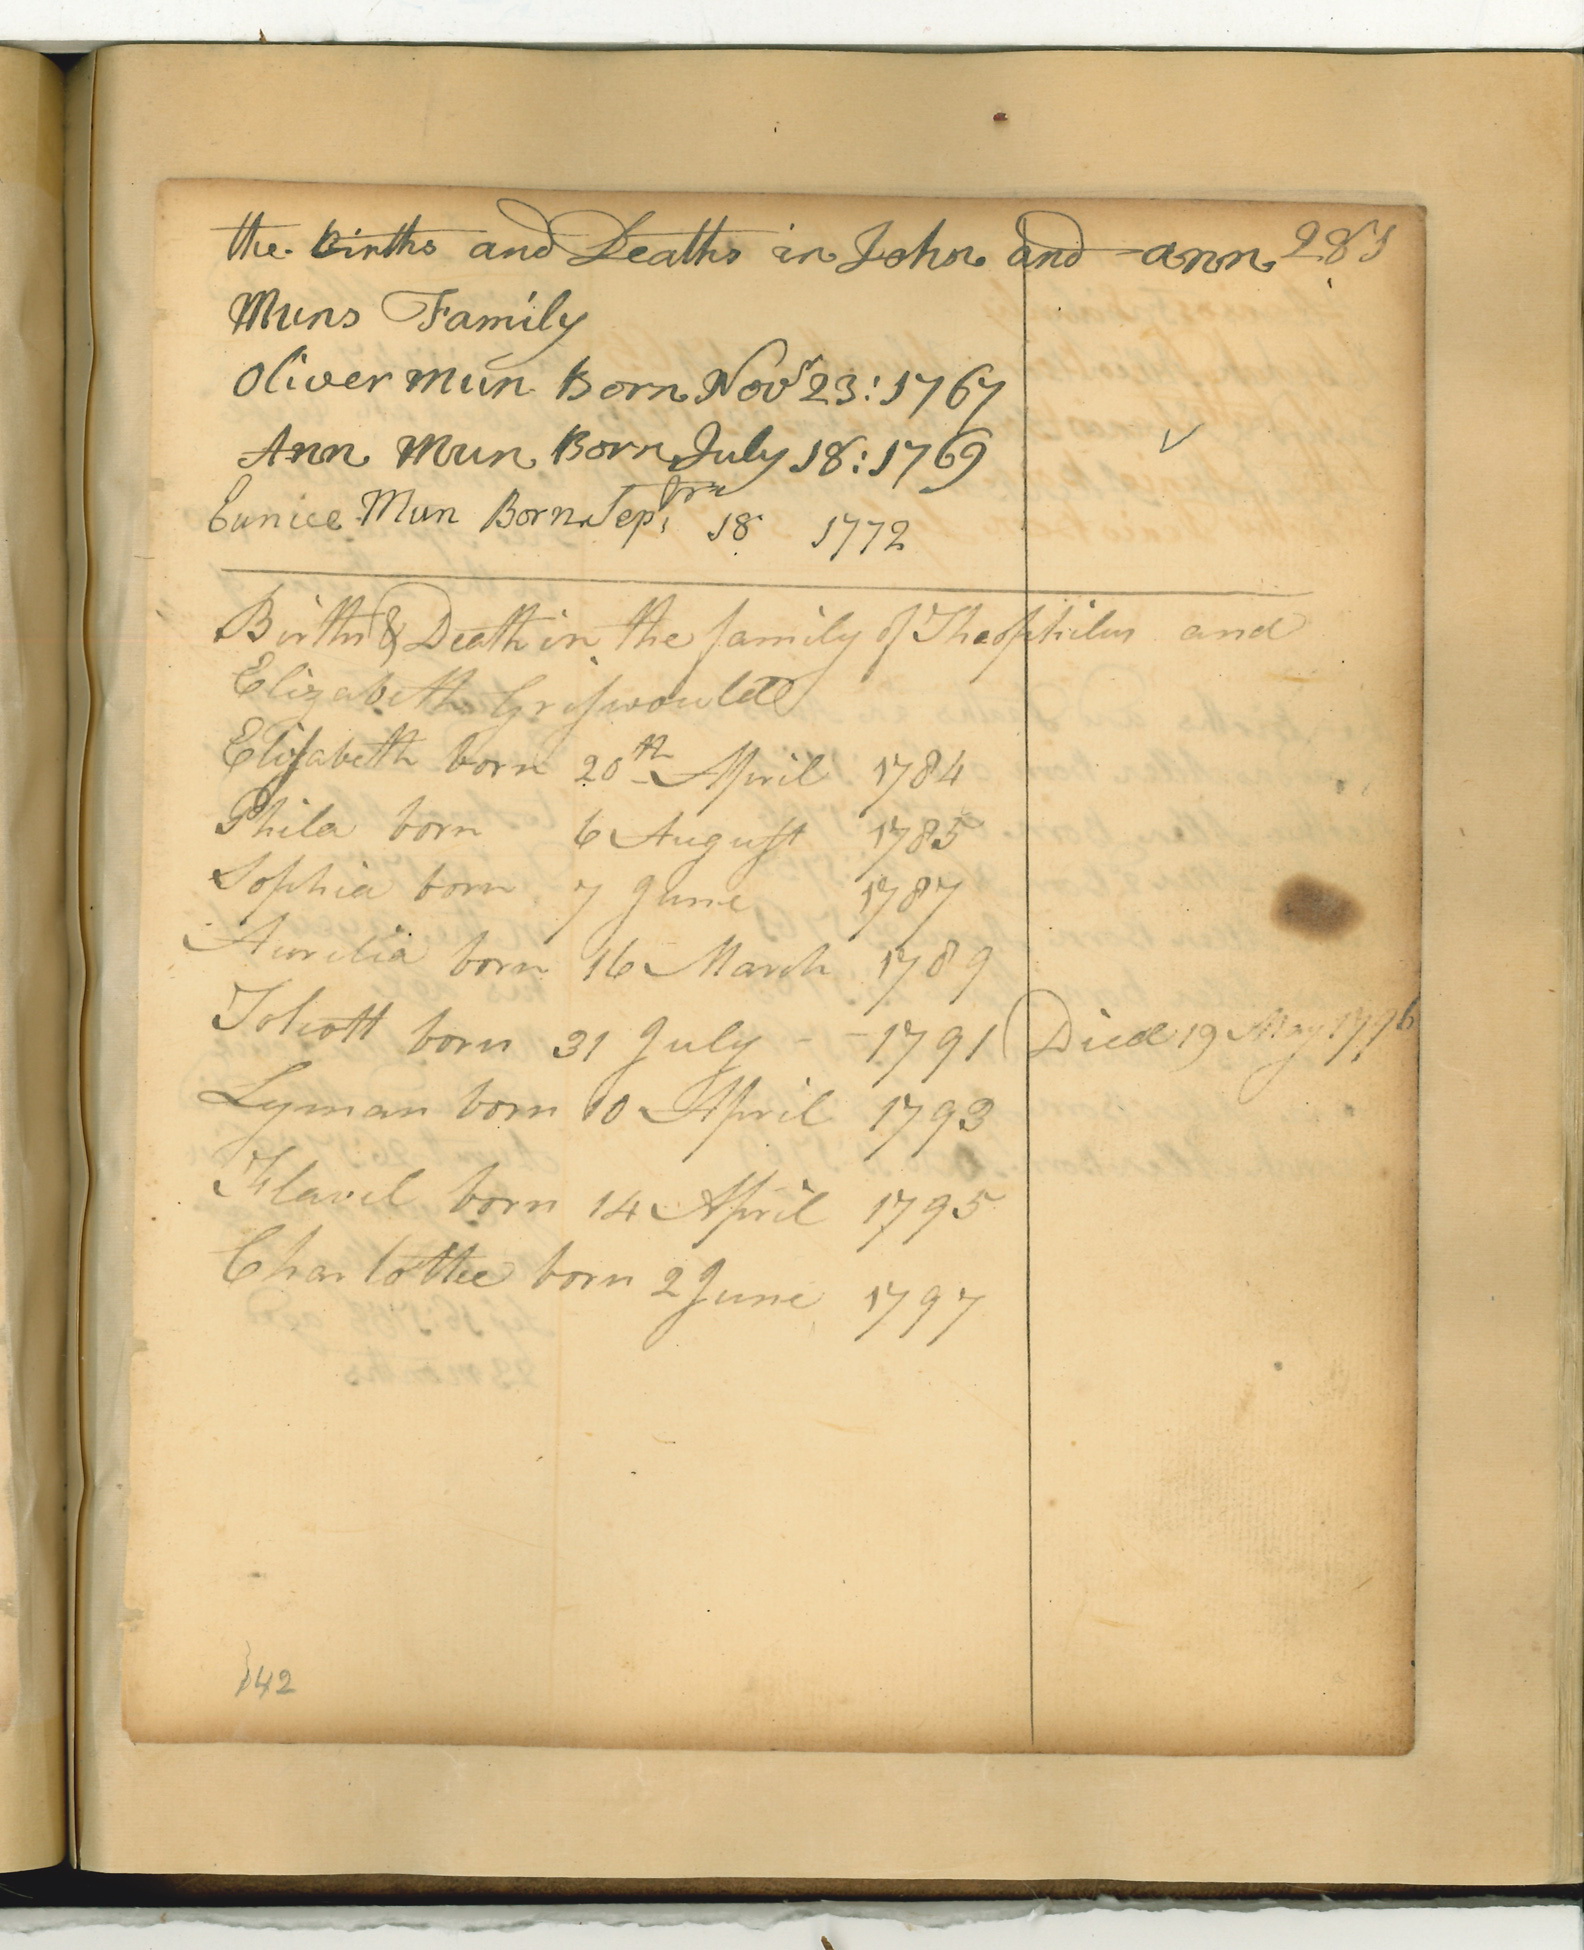 the births and Deaths in John and ann 281
Muns Family
Oliver Mun Born Novr 23: 1767
Ann Mun Born July 18: 1769
Eunice Mun Born Sepbr 18 1772
Births & Death in the family of Theophilus and
Elizabeth Griswould
Elizabeth born 20th April 1784
Phila born 6 August 1785
Sophia born 7 June 1787
Aurelia born 16 March 1789
Tolcott born 31 July - - 1791 Died 19 May 1796
Lyman born 10 April 1793
Flavel born 14 April 1795
Charlottee born 2 June 1797
142